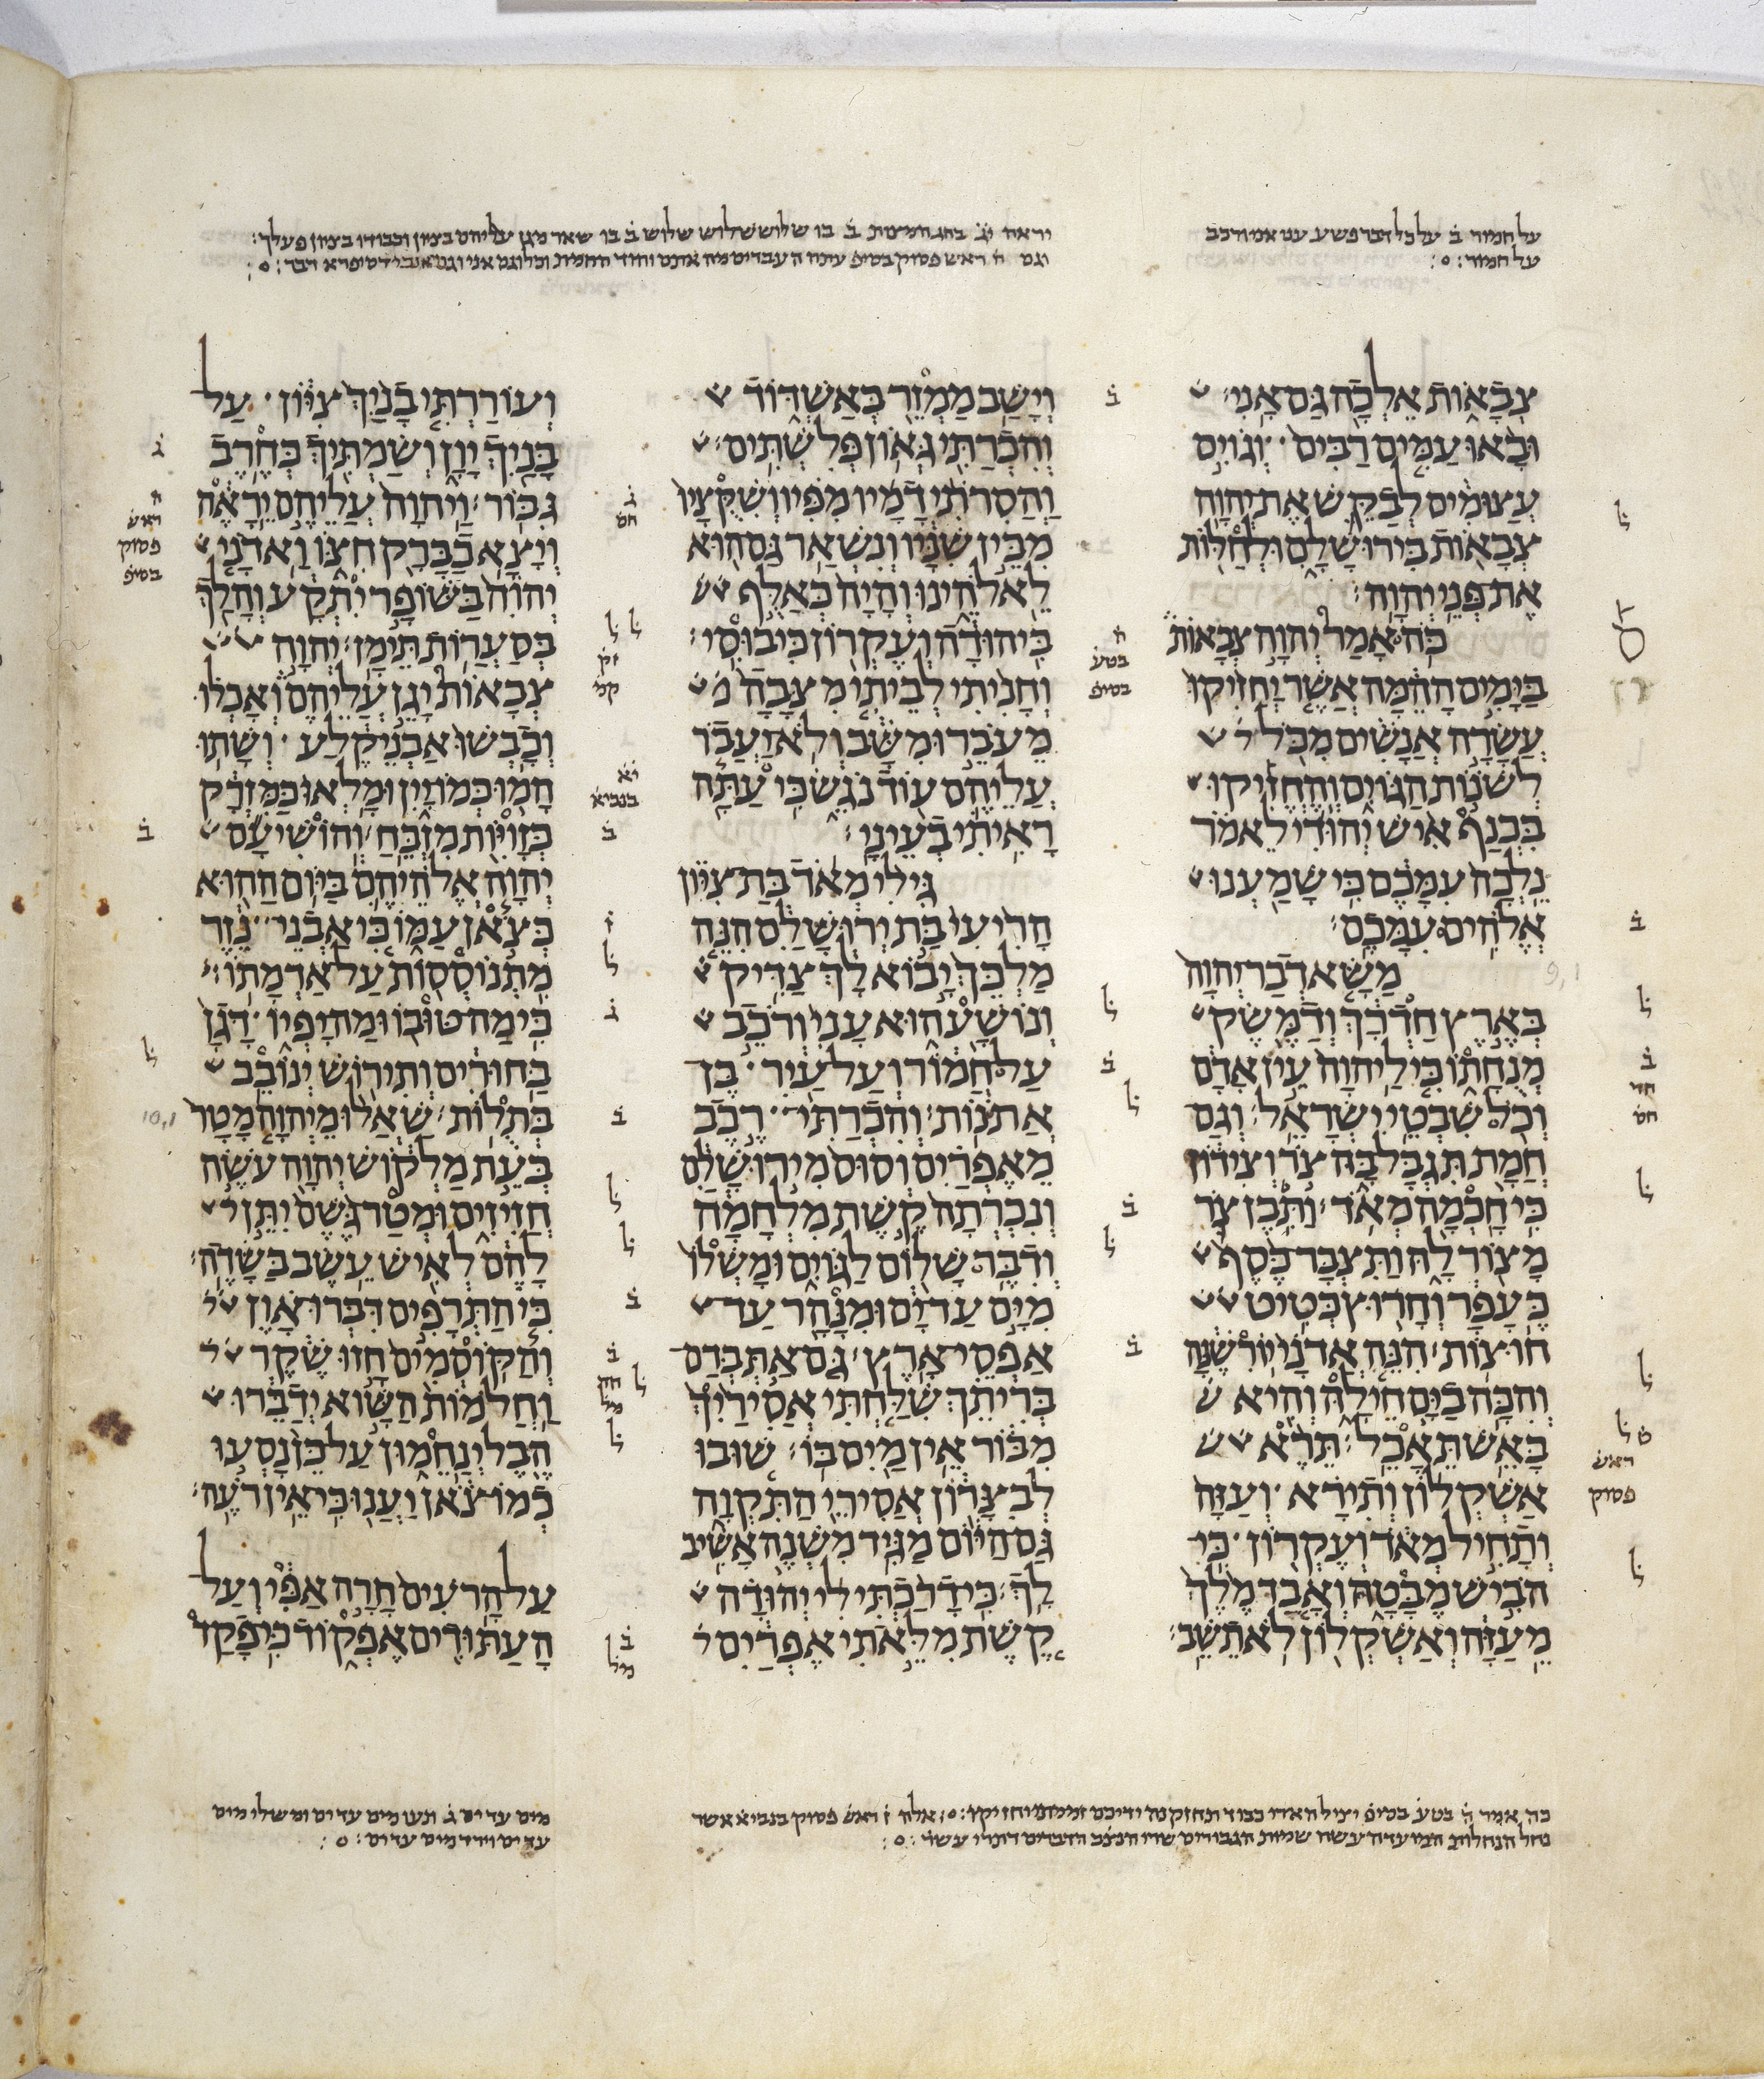 על חמור ב̇ על כל דבר פשע
על חמור :
צְבָאוֹת אֵלְכָה גַּם אָנִי׃
וּבָאוּ עַמִּים רַבִּים וְגוֹיִם
עֲצוּמִים לְבַקֵּשׁ אֶת יְהוָה
צְבָאוֹת בִּירוּשָׁלִָם וּלְחַלּוֹת
אֶת פְּנֵי יְהוָה׃
כֹּה אָמַר יְהוָה צְבָאוֹת
בַּיָּמִים הָהֵמָּה אֲשֶׁר יַחֲזִיקוּ
עֲשָׂרָה אֲנָשִׁים מִכֹּל
לְשֹׁנוֹת הַגּוֹיִם וְהֶחֱזִיקוּ
בִּכְנַף אִישׁ יְהוּדִי לֵאמֹר
נֵלְכָה עִמָּכֶם כִּי שָׁמַעְנוּ
אֱלֹהִים עִמָּכֶם׃
מַשָּׂא דְבַר יְהוָה
בְּאֶרֶץ חַדְרָךְ וְדַמֶּשֶׂק
מְנֻחָתוֹ כִּי לַיהוָה עֵין אָדָם
וְכֹל שִׁבְטֵי יִשְׂרָאֵל׃ וְגַם
חֲמָת תִּגְבָּל בָּהּ צֹר וְצִידוֹן
כִּי חָכְמָה מְאֹד׃ וַתִּבֶן צֹר
מָצוֹר לָהּ וַתִּצְבָּר כֶּסֶף
כֶּעָפָר וְחָרוּץ כְּטִיט
חוּצוֹת׃ הִנֵּה אֲדֹנָי יוֹרִשֶׁנָּה
וְהִכָּה בַיָּם חֵילָהּ וְהִיא
בָּאֵשׁ תֵּאָכֵל׃ תֵּרֶא
אַשְׁקְלוֹן וְתִירָא וְעַזָּה
וְתָחִיל מְאֹד וְעֶקְרוֹן כִּי
הֹבִישׁ מֶבָּטָהּ וְאָבַד מֶלֶךְ
מֵעַזָּה וְאַשְׁקְלוֹן לֹא תֵשֵׁב׃
וְיָשַׁב מַמְזֵר בְּאַשְׁדּוֹד
וְהִכְרַתִּי גְּאוֹן פְּלִשְׁתִּים׃
וַהֲסִרֹתִי דָמָיו מִפִּיו וְשִׁקֻּצָיו
מִבֵּין שִׁנָּיו וְנִשְׁאַר גַּם הוּא
לֵאלֹהֵינוּ וְהָיָה כְּאַלֻּף
בִּיהוּדָה וְעֶקְרוֹן כִּיבוּסִי׃
וְחָנִיתִי לְבֵיתִי מִצָּבָה
מֵעֹבֵר וּמִשָּׁב וְלֹא יַעֲבֹר
עֲלֵיהֶם עוֹד נֹגֵשׂ כִּי עַתָּה
רָאִיתִי בְעֵינָי׃
גִּילִי מְאֹד בַּת צִיּוֹן
הָרִיעִי בַּת יְרוּשָׁלִַם הִנֵּה
מַלְכֵּךְ יָבוֹא לָךְ צַדִּיק
וְנוֹשָׁע הוּא עָנִי וְרֹכֵב
עַל חֲמוֹר וְעַל עַיִר בֶּן
אֲתֹנוֹת׃ וְהִכְרַתִּי רֶכֶב
מֵאֶפְרַיִם וְסוּס מִירוּשָׁלִַם
וְנִכְרְתָה קֶשֶׁת מִלְחָמָה
וְדִבֶּר שָׁלוֹם לַגּוֹיִם וּמָשְׁלוֹ
מִיָּם עַד יָם וּמִנָּהָר עַד
אַפְסֵי אָרֶץ׃ גַּם אַתְּ בְּדַם
בְּרִיתֵךְ שִׁלַּחְתִּי אֲסִירַיִךְ
מִבּוֹר אֵין מַיִם בּוֹ׃ שׁוּבוּ
לְבִצָּרוֹן אֲסִירֵי הַתִּקְוָה
גַּם הַיּוֹם מַגִּיד מִשְׁנֶה אָשִׁיב
לָךְ׃ כִּי דָרַכְתִּי לִי יְהוּדָה
קֶשֶׁת מִלֵּאתִי אֶפְרַיִם
וְעוֹרַרְתִּי בָנַיִךְ צִיּוֹן עַל
בָּנַיִךְ יָוָן וְשַׂמְתִּיךְ כְּחֶרֶב
גִּבּוֹר׃ וַיהוָה עֲלֵיהֶם יֵרָאֶה
וְיָצָא כַבָּרָק חִצּוֹ וַאדֹנָי
יְהוִֹה בַּשּׁוֹפָר יִתְקָע וְהָלַךְ
בְּסַעֲרוֹת תֵּימָן׃ יְהוָה
צְבָאוֹת יָגֵן עֲלֵיהֶם וְאָכְלוּ
וְכָבְשׁוּ אַבְנֵי קֶלַע וְשָׁתוּ
הָמוּ כְּמוֹ יָיִן וּמָלְאוּ כַּמִּזְרָק
כְּזָוִיּוֹת מִזְבֵּחַ׃ וְהוֹשִׁיעָם
יְהוָה אֱלֹהֵיהֶם בַּיּוֹם הַהוּא
כְּצֹאן עַמּוֹ כִּי אַבְנֵי נֵזֶר
מִתְנוֹסְסוֹת עַל אַדְמָתוֹ׃
כִּי מַה טּוּבוֹ וּמַה יָפְיוֹ דָּגָן
בַּחוּרִים וְתִירוֹשׁ יְנוֹבֵב
בְּתֻלוֹת׃ שַׁאֲלוּ מֵיְהוָה מָטָר
בְּעֵת מַלְקוֹשׁ יְהוָה עֹשֶׂה
חֲזִיזִים וּמְטַר גֶּשֶׁם יִתֵּן
לָהֶם לְאִישׁ עֵשֶׂב בַּשָּׂדֶה׃
כִּי הַתְּרָפִים דִּבְּרוּ אָוֶן
וְהַקּוֹסְמִים חָזוּ שֶׁקֶר
וַחֲלֹמוֹת הַשָּׁוא יְדַבֵּרוּ
הֶבֶל יְנַחֵמוּן עַל כֵּן נָסְעוּ
כְמוֹ צֹאן יַעֲנוּ כִּי אֵין רֹעֶה׃
עַל הָרֹעִים חָרָה אַפִּי וְעַל
הָעַתּוּדִים אֶפְקוֹד כִּי פָקַד
ראש
פסוק
בטע
בסיפ
בנביא
ראש
פסוק
בסיפ
מים עד ים ג̇
עד ים וירד מים עד ים :
9,1
10,1